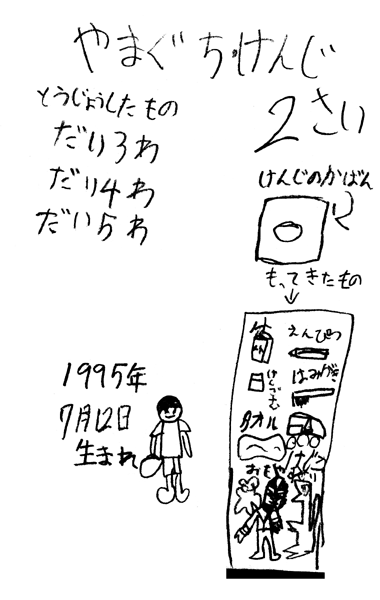 やまぐちけんじ
2さい
とうじょうしたもの
だい3わ
だい4わ
だい5わ
けんじのかばん
もってきたもの
えんぴつ
けしごむ
はみがき
タオル
おもちゃ
1995年
7月12日
生まれ